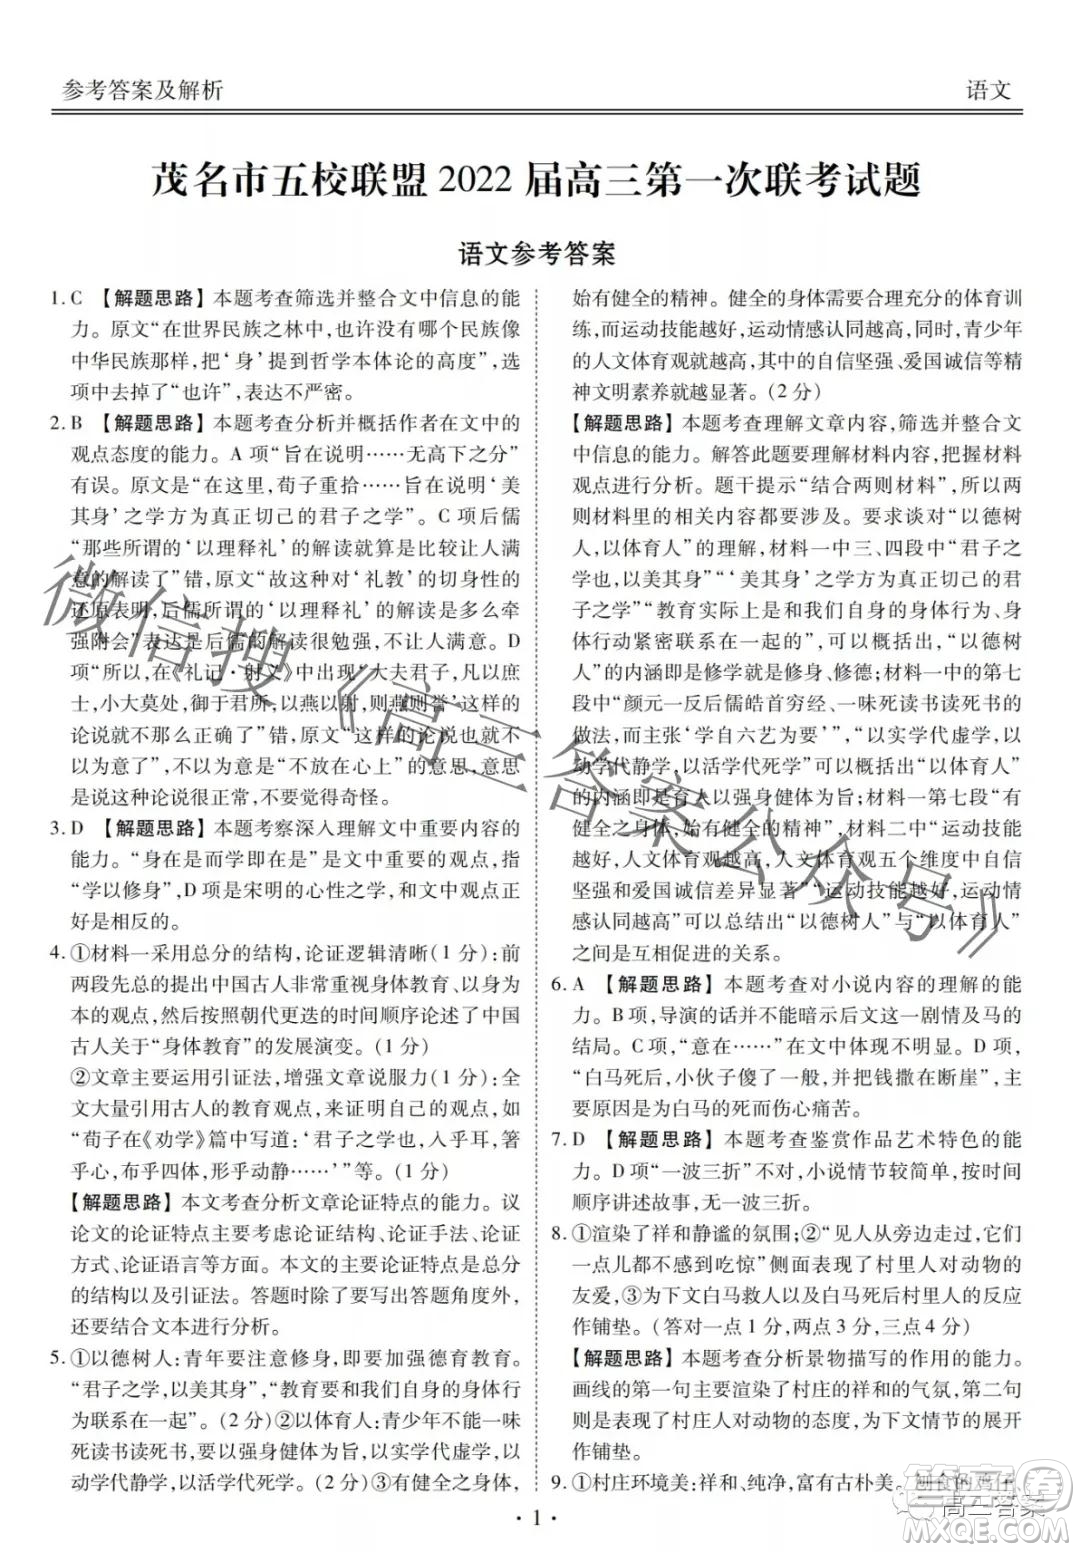 参考答案及解析
语文
茂名市五校联盟 2022 届高三第一次联考试题
语文参考答案
1. C 【解题思路】本题考查筛选并整合文中信息的能
力。原文“在世界民族之林中，也许没有哪个民族像
中华民族那样，把‘身’提到哲学本体论的高度”，选
项中去掉了“也许”，表达不严密。
2. B 【解题思路】本题考查分析并概括作者在文中的
观点态度的能力。A 项“旨在说明……无高下之分”
有误。原文是“在这里，荀子重拾……旨在说明‘美
其身’之学方为真正切己的君子之学”。C 项后儒
“那些所谓的‘以理释礼’的解读就算是比较令人满
意的解读了”错，原文“故这种对‘礼教’的切身性的
还原表明，后儒所谓的‘以理释礼’的解读是多么牵
强附会”表达是后儒的解读很勉强，不让人满意。D
项“所以，在《礼记·射义》中出现“大夫君子，凡以庶
士，小大莫处，御于君所，以燕以射，则燕则誉’这样的
论说就不那么正常了”错，原文“这样的论说也就不
以为意了”“不以为意”是“不放在心上”的意思，意思
是说这种论说很正常，不要觉得奇怪。
3. D 【解题思路】本题考察深入理解文中重要内容的
能力。“身在是而学即在是”是文中重要的观点，指
“学以修身”，D 项是宋明的心性之学，和文中观点正
好是相反的。
4. ①材料一采用总分的结构，论证逻辑清晰（1 分）；前
两段先总的提出中国古人非常重视身体教育、以身为
本的观点，然后按照朝代更迭的时间顺序论述了中国
古人关于“身体教育”的发展演变。（1 分）
②文章主要运用引证法，增强文章说服力（1 分）；全
文大量引用古人的教育观点，来对观点进行论述，如
“荀子在《劝学》篇中写道：‘君子之学也，入乎耳，箸
乎心，布乎四体，形乎动静……’”等。（1 分）
【解题思路】本文考查分析文章论证特点的能力。议
论文的论证特点主要考虑论证结构、论证手法、论证
方式、论证语言等方面。本文的论证特点主要是总分
的结构以及引证法。答题时除了要写出答题角度外，
还要结合文本进行分析。
5. ①以德树人：青年要注意修身，即要加强德育教育。
“君子之学，以美其身”，“教育要和我们自身的身体
行为联系在一起”。（2 分）②以体育人：青少年不能一味
死读书读死书，以强身健体为旨，以实学代虚学，以
动学代静学，以活学代死学。（2 分）③有健全之身体，
始有健全的精神。健全的身体需要合理充分的体育训
练，而运动技能越好，运动情感认同越高，同时，青少年
的人文体育观就越高，其中的自信坚强、爱国诚信等精
神文明素养就越显著。（2 分）
【解题思路】本题考查理解文章内容，筛选并整合文
中信息的能力。解答此题要理解材料内容，把握材料
观点进行分析。题干提示“结合两则材料”，所以两
则材料里的相关内容都要涉及。要求谈对“以德树
人，以体育人”的理解，材料一中三、四段中“君子之
学也，以美其身”“‘美其身’之学方为真正切己的君
子之学”“教育实际上是和我们自身的身体行为、身
体举动紧密联系在一起的”，可以概括出“以德树人”
的内涵即是修学就是修身、修德；材料一中的第七
段中“颜元一反后儒皓首穷经、一味死读书读死书的
做法，而主张‘学自六艺为要’”，“以实学代虚学，以
动学代静学，以活学代死学”可以概括出“以体育人”
的内涵即是育人以强身健体为旨；材料一第七段“有
健全之身体，始有健全的精神”，材料二中“运动情感
越好，人文体育观越高，人文体育观五个维度中自信
坚强和爱国诚信差异显著”“运动技能越好，运动情
感认同越高”可以总结出“以德树人”与“以体育人”
之间是互相促进的关系。
6. A 【解题思路】本题考查对小说内容的理解的能
力。B 项，导演的话并不能暗示后文这一剧情及马的
结局。C 项，“意在……”在文中体现不明显。D 项，
“白马死后，小伙子傻了一般，并把钱撒在断崖”，主
要原因是小伙子为白马的死而伤心痛苦。
7. D 【解题思路】本题考查鉴赏作品艺术特色的能
力。D 项“一波三折”不对，小说情节较简单，按时间
顺序讲述故事，无一波三折。
8. ①渲染了祥和静谧的氛围；②“见人从旁边走过，它们
一点儿都不感到吃惊”侧面表现了村里人对动物的
友爱，③为下文白马救人以及白马死后村里人的反应
作铺垫。（答对一点 1 分，两点 3 分，三点 4 分）
【解题思路】本题考查分析景物描写的作用的能力。
画线的第一句主要渲染了村庄的祥和的气氛，第二句
则是表现了村庄人对动物的态度，为下文情节的展开
作铺垫。
9. ①村庄环境美：祥和、纯净，富有古朴美。
· 1 ·
微信搜《高三答案公众号》
高三答案
答案圈
MXQE.COM